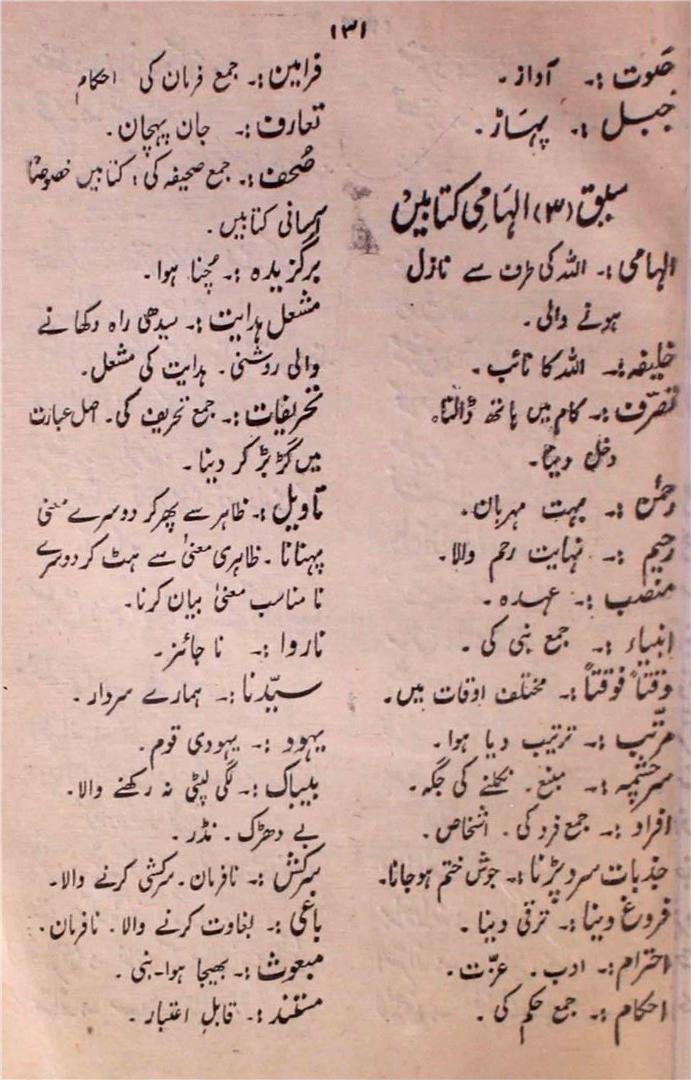 ۱۳۱
صَوت :۔ آواز ۔
جبل :۔ پہاڑ ۔
سبق (۳) الہامی کتابیں
الہامی :۔ اللہ کی طرف سے نازل
ہونے والی ۔
خلیفہ :۔ اللہ کا نائب ۔
تصرّف :۔ کام میں ہاتھ ڈالنا،
دخل دینا ۔
رحمٰن :۔ بہت مہربان ۔
رحیم :۔ نہایت رحم والا ۔
منصب :۔ عہدہ ۔
انبیاء :۔ جمع نبی کی ۔
وقتاً فوقتاً :۔ مختلف اوقات میں ۔
مرتّب :۔ ترتیب دیا ہوا ۔
سرچشمہ :۔ منبع ۔ نکلنے کی جگہ ۔
افراد :۔ جمع فرد کی ۔ اشخاص ۔
جذبات سرد پڑنا :۔ جوش ختم ہو جانا ۔
فروغ دینا :۔ ترقی دینا ۔
احترام :۔ ادب ۔ عزّت ۔
احکام :۔ جمع حکم کی ۔
فرامین :۔ جمع فرمان کی احکام
تعارف :۔ جان پہچان ۔
صُحف :۔ جمع صحیفہ کی ؛ کتابیں خصوصاً
آسمانی کتابیں ۔
برگزیدہ :۔ چُنا ہوا ۔
مشعل ہدایت :۔ سیدھی راہ دکھانے
والی روشنی ۔ ہدایت کی مشعل ۔
تحریفات :۔ جمع تحریف کی ۔ اصل عبارت
میں گڑبڑ کر دینا ۔
تاویل :۔ ظاہر سے پھر کر دوسرے معنی
پہنانا ۔ ظاہری معنیٰ سے ہٹ کر دوسرے
نا مناسب معنیٰ بیان کرنا ۔
ناروا :۔ نا جائز ۔
سیّدنا :۔ ہمارے سردار ۔
یہود :۔ یہودی قوم ۔
بیباک :۔ لگی لپٹی نہ رکھنے والا ۔
بے دھڑک ۔ نڈر ۔
سرکش :۔ نافرمان ۔ سرکشی کرنے والا ۔
باغی :۔ بغاوت کرنے والا ۔ نافرمان ۔
مبعوث :۔ بھیجا ہوا ۔ نبی ۔
مستند :۔ قابلِ اعتبار ۔